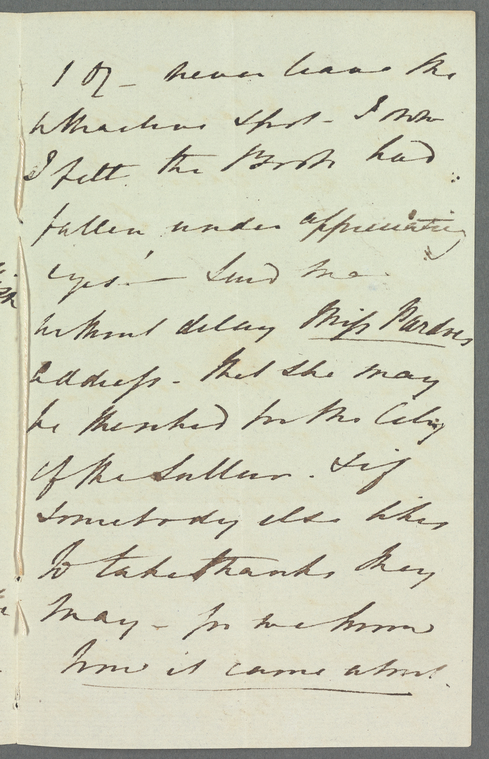 1 Of - never leave the
attractive spot - I own
I felt the Book had
fallen under appreciating
eyes! - Send me
without delay Miss Pardoes
address - that she may
be thanked for the City
of the Sultan. & if
somebody else likes
to take thanks they
may - for we know
how it came about.